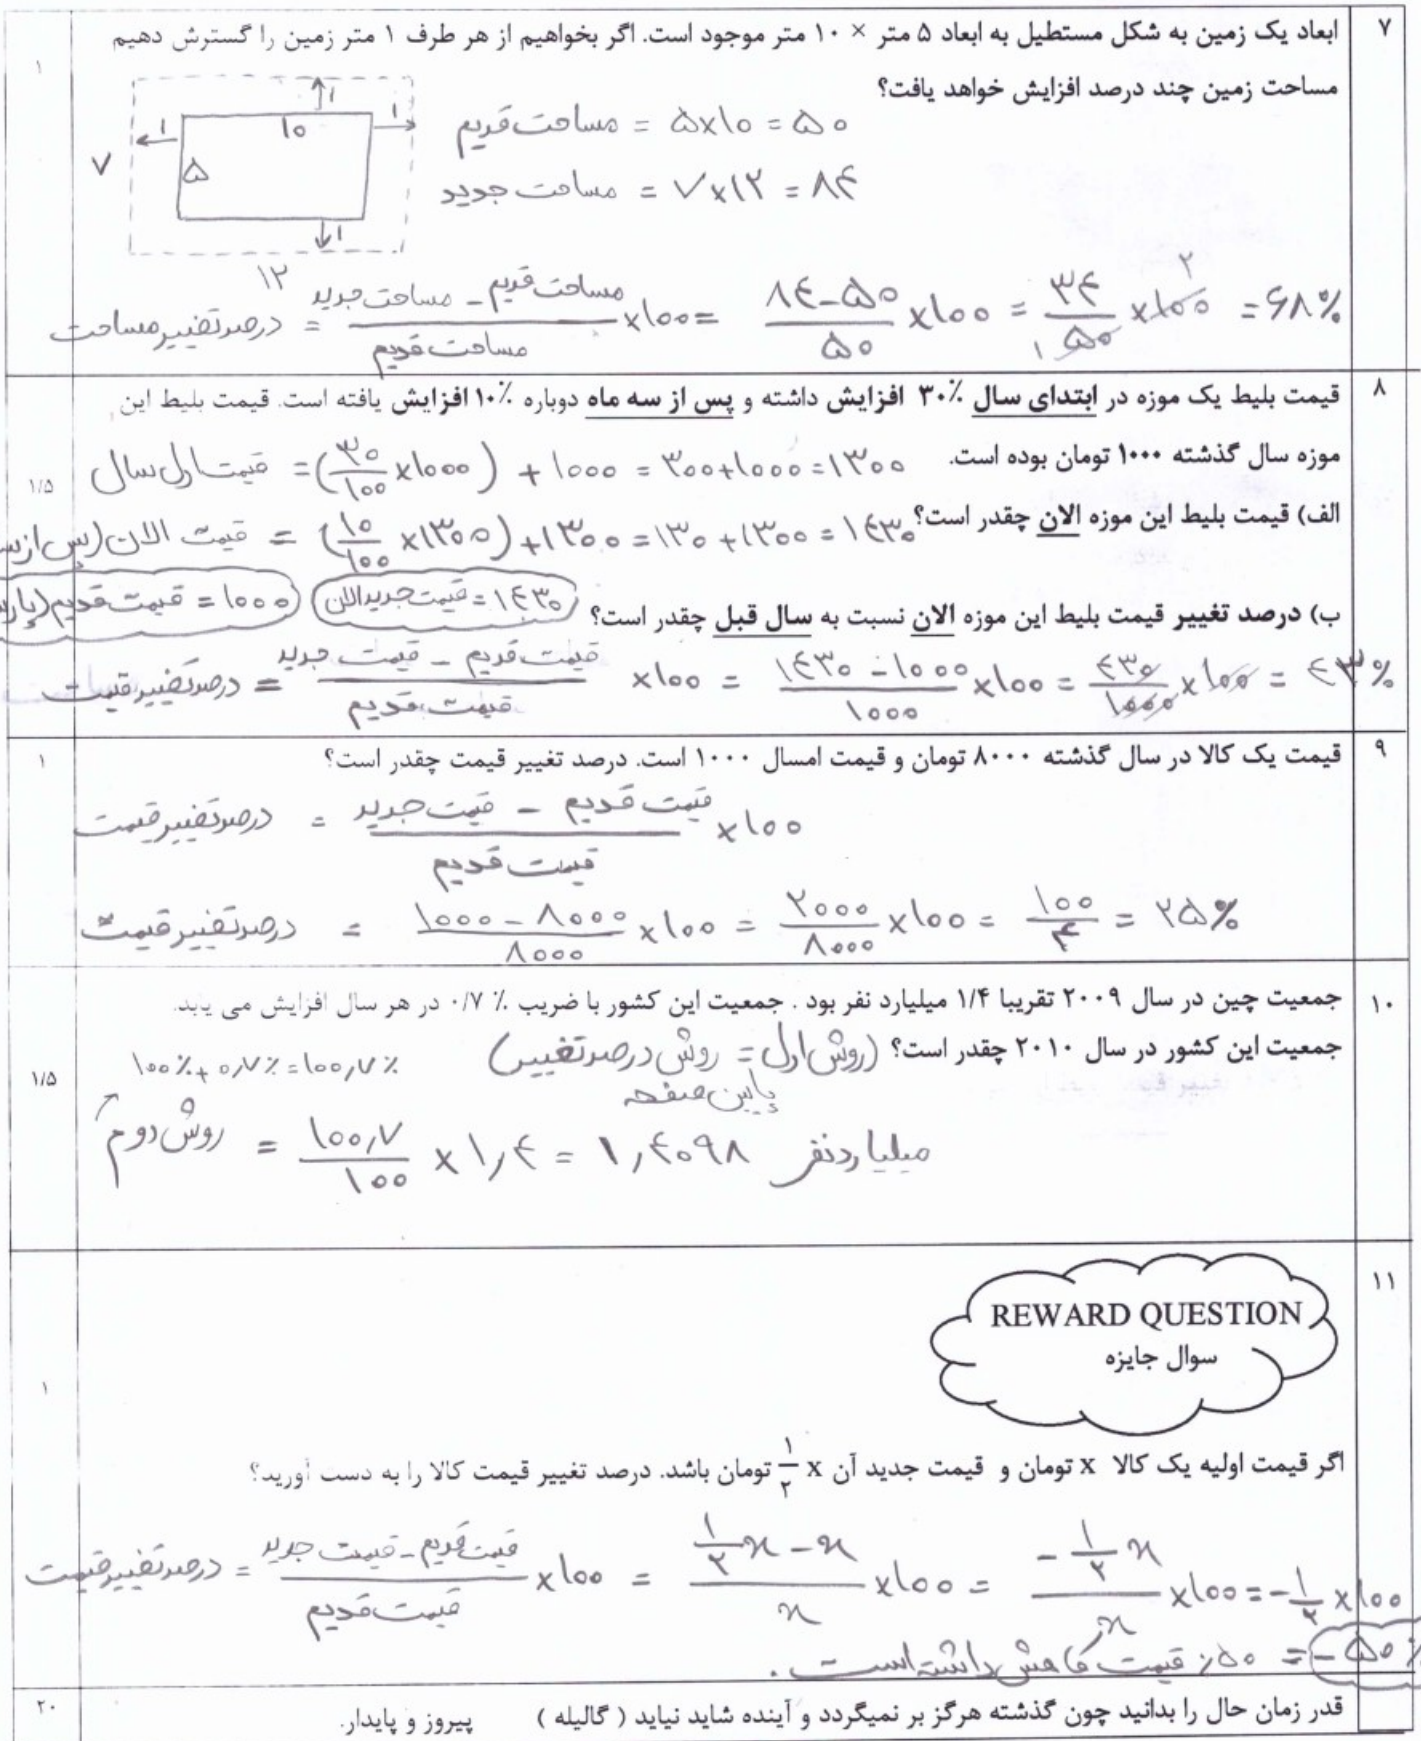 ۷ ابعاد یک زمین به شکل مستطیل به ابعاد ۵ متر × ۱۰ متر موجود است. اگر بخواهیم از هر طرف ۱ متر زمین را گسترش دهیم
۱
مساحت زمین چند درصد افزایش خواهد یافت؟
۱ ۱ ۱ ۱
۱۰
۵
۷
۱۲
مساحت قدیم = ۵×۱۰ = ۵۰
مساحت جدید = ۷×۱۲ = ۸۴
درصد تغییر مساحت = (مساحت جدید - مساحت قدیم) / مساحت قدیم ×۱۰۰ = (۸۴-۵۰)/۵۰ ×۱۰۰ = ۳۴/۵۰ ×۱۰۰ = ۶۸%
۲
۱
۸ قیمت بلیط یک موزه در ابتدای سال ۳۰٪ افزایش داشته و پس از سه ماه دوباره ۱۰٪ افزایش یافته است. قیمت بلیط این
موزه سال گذشته ۱۰۰۰ تومان بوده است.
قیمت اول سال = (۳۰/۱۰۰ ×۱۰۰۰) + ۱۰۰۰ = ۳۰۰+۱۰۰۰ = ۱۳۰۰
۱/۵
الف) قیمت بلیط این موزه الان چقدر است؟
قیمت الان (پس از = (۱۰/۱۰۰ ×۱۳۰۰)+۱۳۰۰ = ۱۳۰+۱۳۰۰ = ۱۴۳۰
ب) درصد تغییر قیمت بلیط این موزه الان نسبت به سال قبل چقدر است؟
۱۴۳۰ = قیمت جدید الان
۱۰۰۰ = قیمت قدیم
درصد تغییر قیمت = (قیمت جدید - قیمت قدیم) / قیمت قدیم ×۱۰۰ = (۱۴۳۰ - ۱۰۰۰)/۱۰۰۰ ×۱۰۰ = ۴۳۰/۱۰۰۰ ×۱۰۰ = ۴۳%
۹ قیمت یک کالا در سال گذشته ۸۰۰۰ تومان و قیمت امسال ۱۰۰۰ است. درصد تغییر قیمت چقدر است؟
۱
درصد تغییر قیمت = (قیمت جدید - قیمت قدیم) / قیمت قدیم ×۱۰۰
درصد تغییر قیمت = (۱۰۰۰ - ۸۰۰۰)/۸۰۰۰ ×۱۰۰ = ۲۰۰۰/۸۰۰۰ ×۱۰۰ = ۱۰۰/۴ = ۲۵%
۱۰ جمعیت چین در سال ۲۰۰۹ تقریبا ۱/۴ میلیارد نفر بود . جمعیت این کشور با ضریب ٪ ۰/۷ در هر سال افزایش می یابد.
جمعیت این کشور در سال ۲۰۱۰ چقدر است؟ (روش اول = روش درصد تغییر)
پایین صفحه
۱۰۰٪ + ۰٫۷٪ = ۱۰۰٫۷٪
۱/۵
روش دوم = ۱۰۰٫۷/۱۰۰ × ۱٫۴ = ۱٫۴۰۹۸ میلیارد نفر
۱۱
REWARD QUESTION
سوال جایزه
۱
اگر قیمت اولیه یک کالا x تومان و قیمت جدید آن ۱/۲ x تومان باشد. درصد تغییر قیمت کالا را به دست آورید؟
درصد تغییر قیمت = (قیمت جدید - قیمت قدیم) / قیمت قدیم ×۱۰۰ = (۱/۲ x - x)/x ×۱۰۰ = (-۱/۲ x)/x ×۱۰۰ = -۱/۲ ×۱۰۰
= -۵۰٪ = ۵۰٪ قیمت کاهش داشته است.
قدر زمان حال را بدانید چون گذشته هرگز بر نمیگردد و آینده شاید نیاید ( گالیله ) پیروز و پایدار.
۲۰